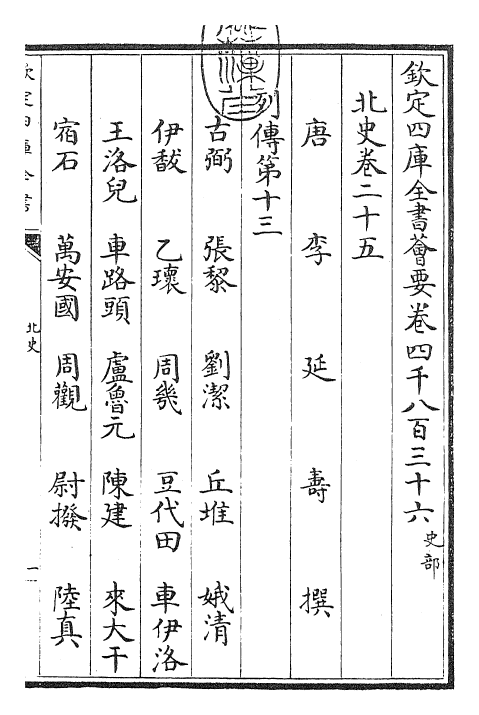 欽定四庫全書薈要卷四千八百三十六 史部
北史卷二十五
唐 李 延 壽 撰
列傳第十三
古弼 張黎 劉潔 丘堆 娥清
伊馛 乙瓌 周幾 豆代田 車伊洛
王洛兒 車路頭 盧魯元 陳建 來大千
宿石 萬安國 周觀 尉撥 陸真
欽定四庫全書
北史
一